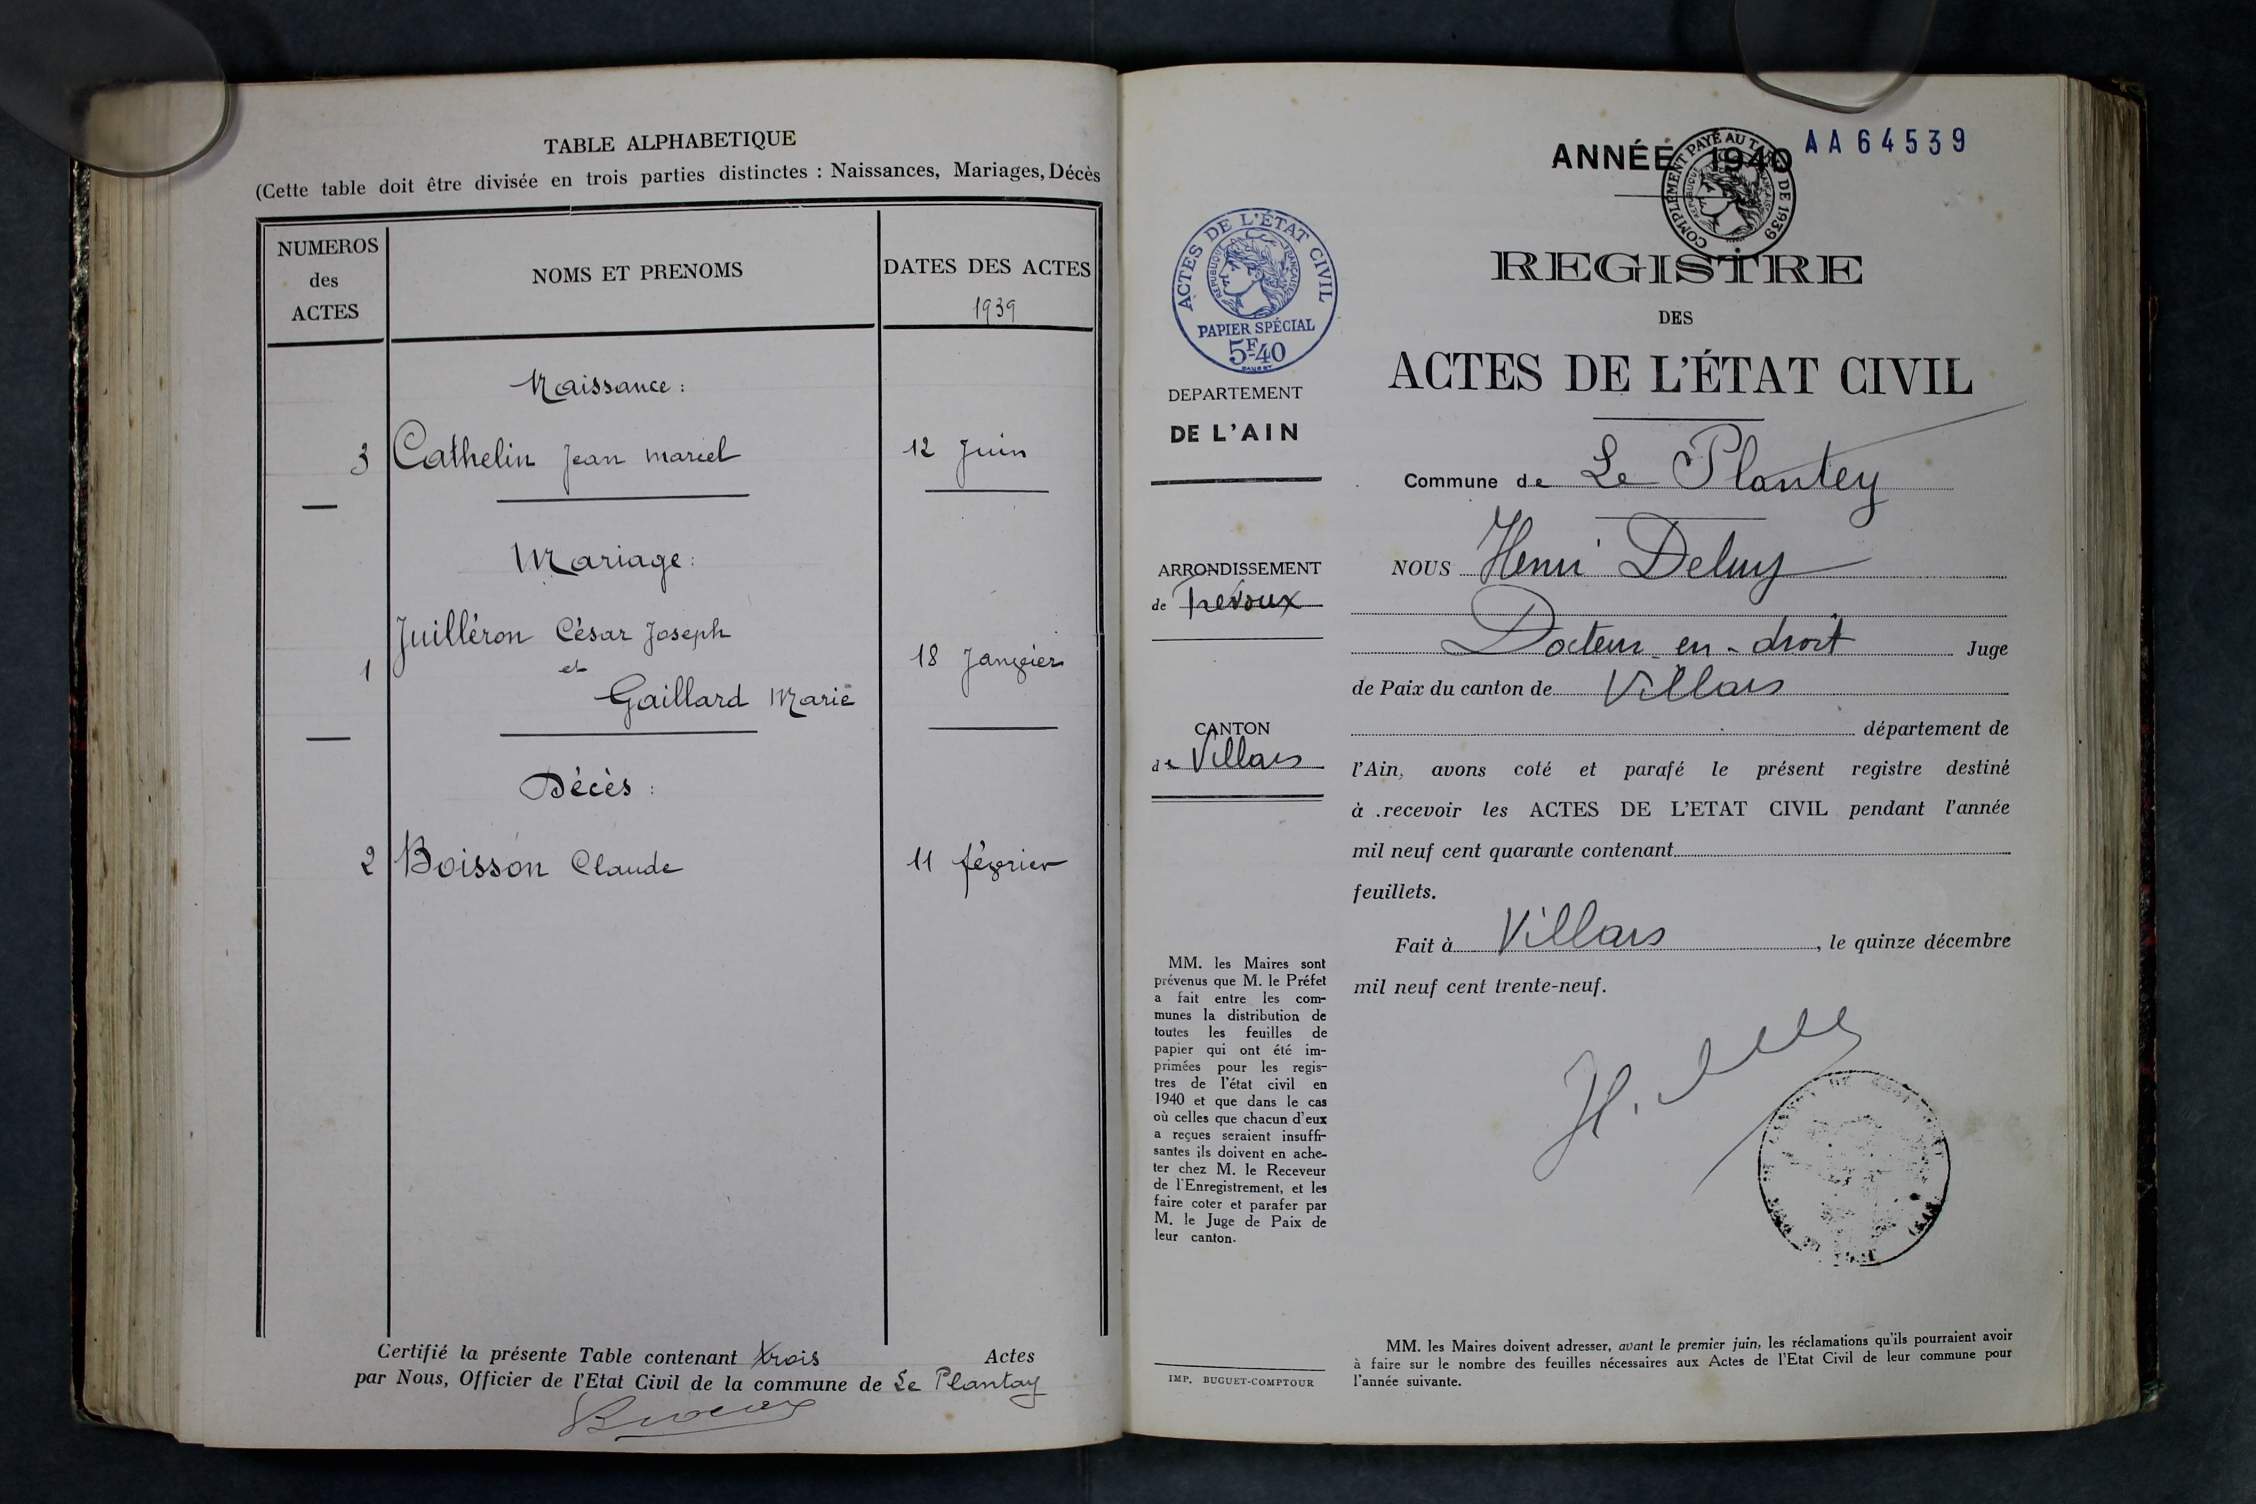 TABLE ALPHABETIQUE
(Cette table doit être divisée en trois parties distinctes : Naissances, Mariages, Décès
NUMEROS
des
ACTES
NOMS ET PRENOMS
DATES DES ACTES
1939
Naissance :
3 Cathelin Jean marcel 12 Juin
Mariage :
Juilléron César Joseph
1 et 18 Janvier
Gaillard Marie
Décès :
2 Boisson Claude 11 février
Certifié la présente Table contenant trois Actes
par Nous, Officier de l'Etat Civil de la commune de Le Plantay
ANNÉE 1940
AA64539
COMPLÉMENT PAYÉ AU TARIF DE 1939
REPUBLIQUE FRANÇAISE
ACTES DE L'ÉTAT CIVIL
REPUBLIQUE FRANÇAISE
PAPIER SPÉCIAL
5F40
DEPARTEMENT
DE L'AIN
ARRONDISSEMENT
de Trévoux
CANTON
de Villars
MM. les Maires sont
prévenus que M. le Préfet
a fait entre les com-
munes la distribution de
toutes les feuilles de
papier qui ont été im-
primées pour les regis-
tres de l'état civil en
1940 et que dans le cas
où celles que chacun d'eux
a reçues seraient insuffi-
santes ils doivent en ache-
ter chez M. le Receveur
de l'Enregistrement, et les
faire coter et parafer par
M. le Juge de Paix de
leur canton.
IMP. BUGUET-COMPTOUR
REGISTRE
DES
ACTES DE L'ÉTAT CIVIL
Commune de Le Plantey
NOUS Henri Deluy
Docteur-en-droit Juge
de Paix du canton de Villars
département de
l'Ain, avons coté et parafé le présent registre destiné
à recevoir les ACTES DE L'ETAT CIVIL pendant l'année
mil neuf cent quarante contenant
feuillets.
Fait à Villars, le quinze décembre
mil neuf cent trente-neuf.
MM. les Maires doivent adresser, avant le premier juin, les réclamations qu'ils pourraient avoir
à faire sur le nombre des feuilles nécessaires aux Actes de l'Etat Civil de leur commune pour
l'année suivante.